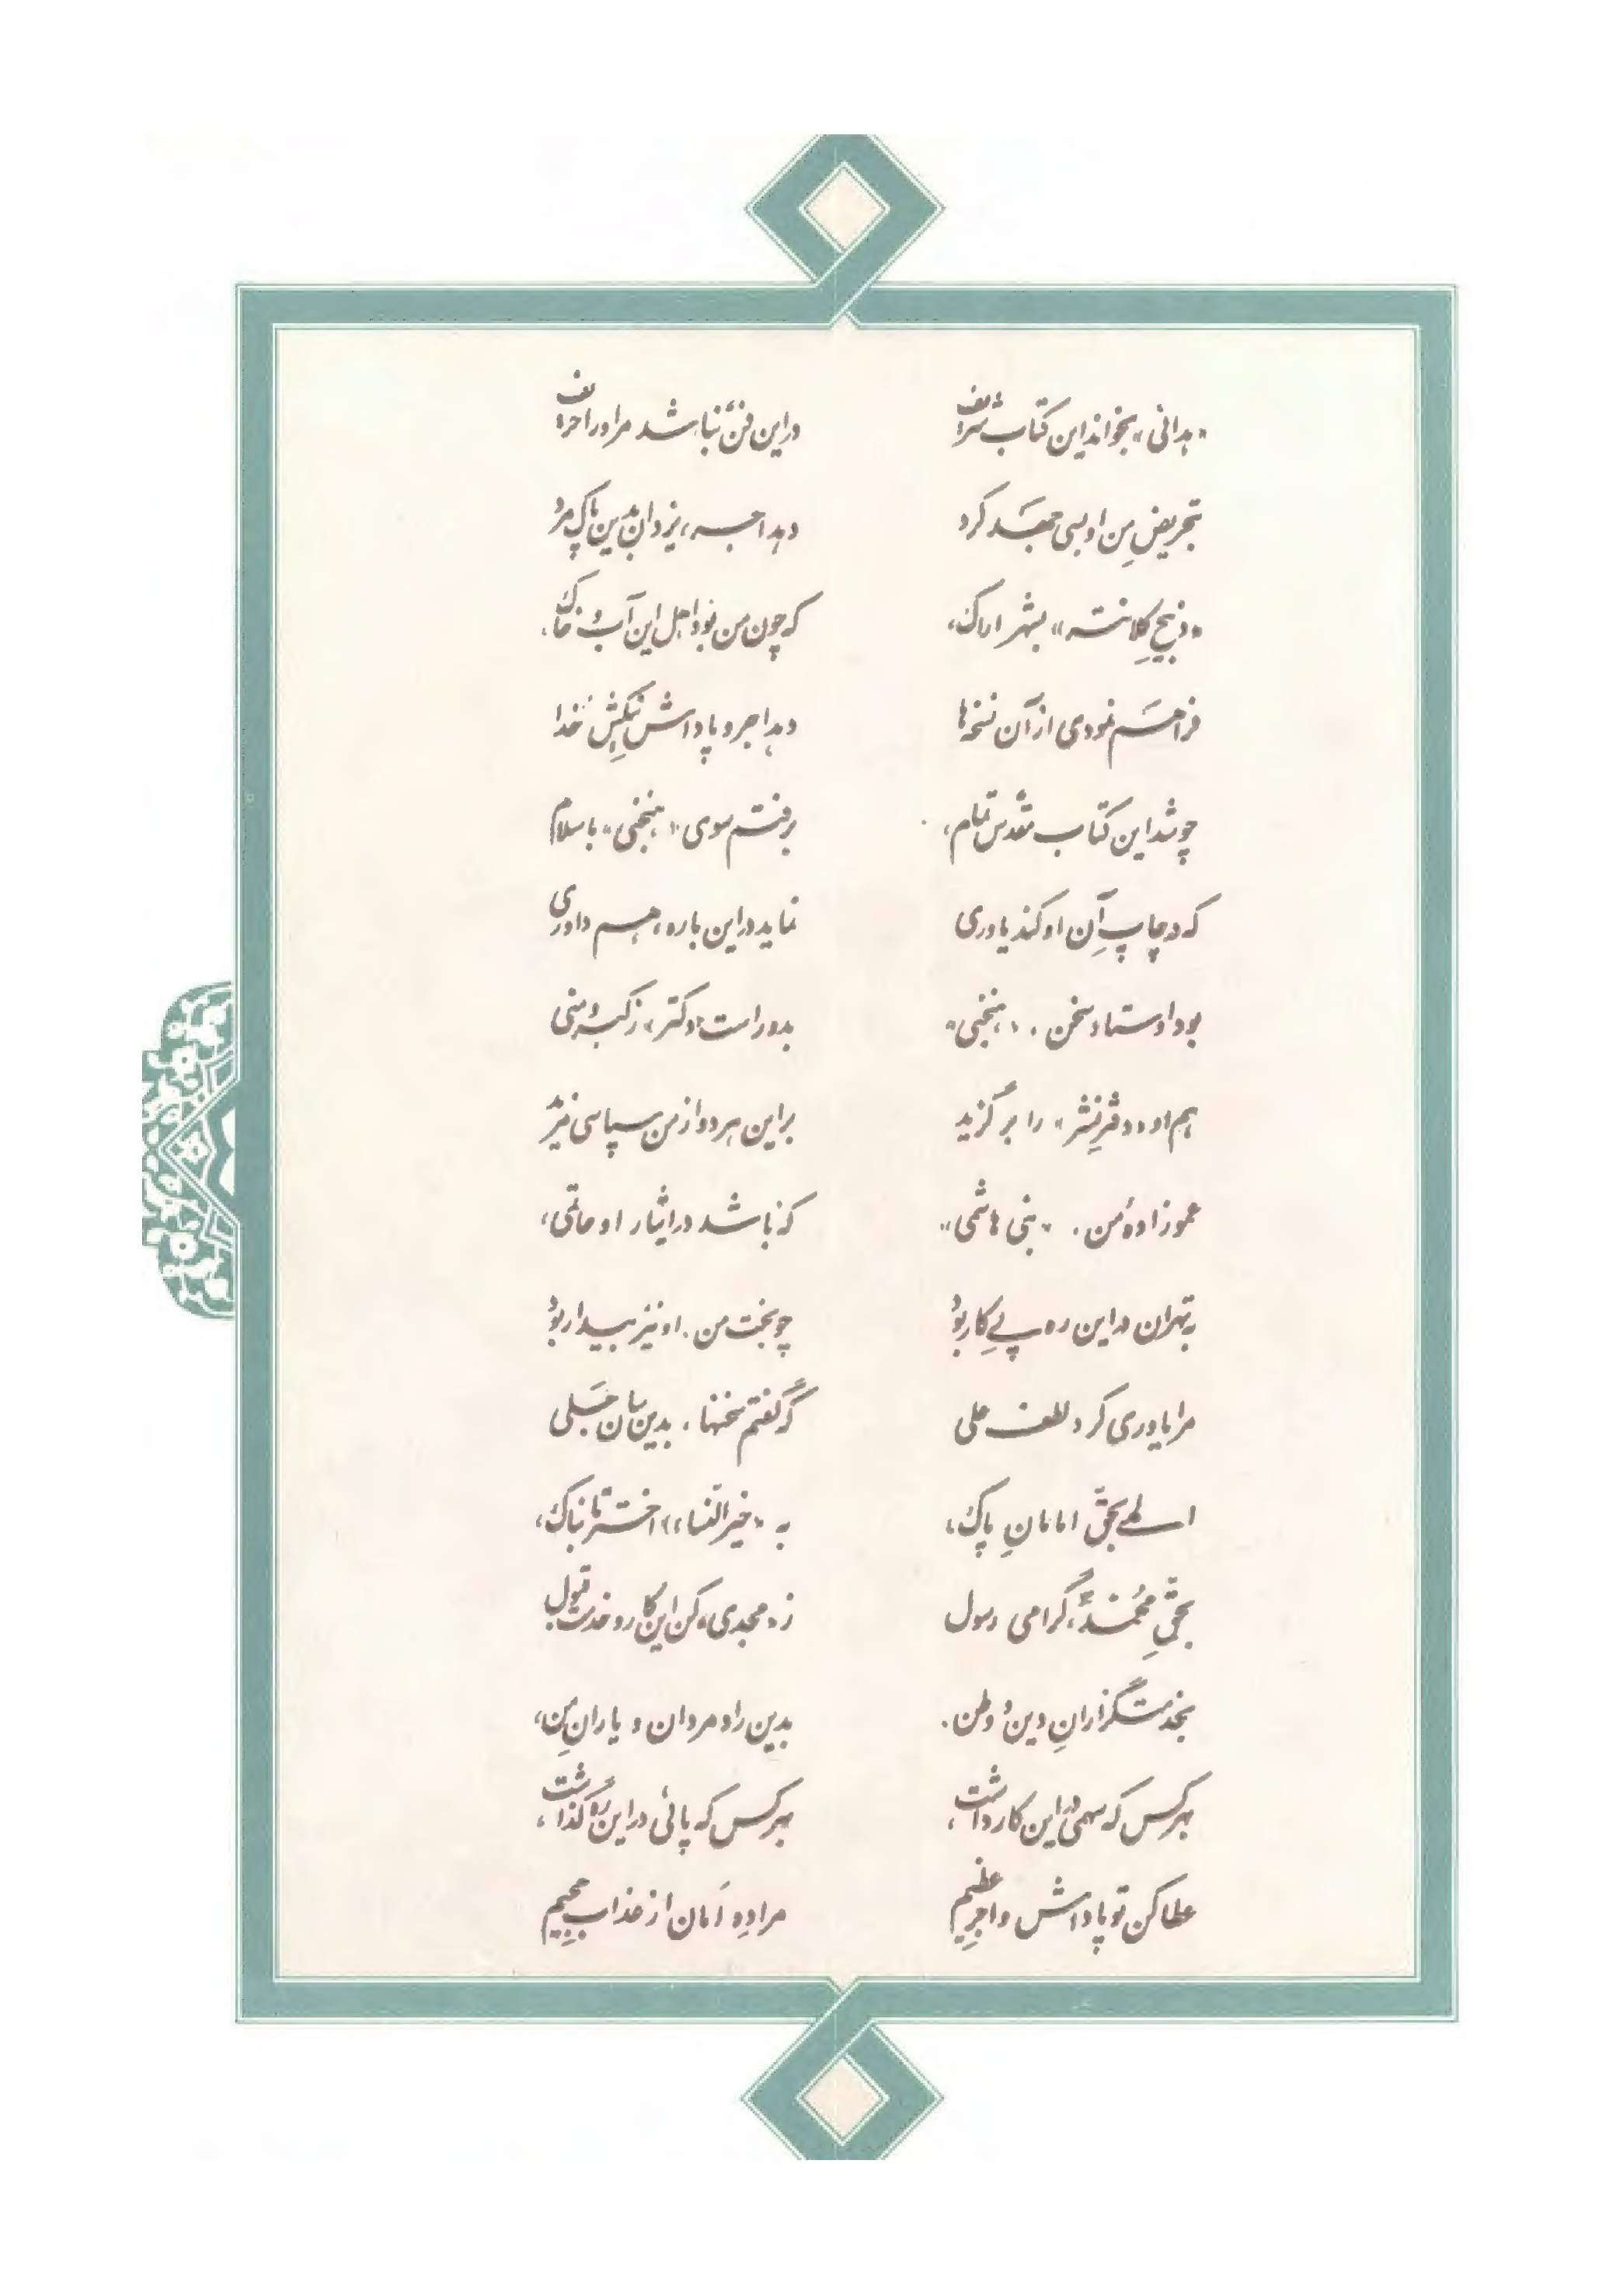 «همدانی» بخواند این کتاب شریف در این فنّ نباشد مر او را حریف
بتحریض من او بسی جهد کرد دهد اجر، یزدان بدین پاک مرد
«ذبیح کلانته» بشهر اراک، که چون من بود اهل این آب و خاک،
فراهم نمودی از آن نسخه‌ها دهد اجر و پاداش نیکش خدا
چو شد این کتاب مقدّس تمام، برفتم سوی «بهنجنی» با سلام
که در چاپ آن او کند یاوری نماید در این باره، هم داوری
بود اوستاد سخن، بدور است «دکتر» ز کبر و منی
هم او «دفتر نشر» را برگزید بر این هر دو از من سپاسی مزید
عموزادهٔ من، «بنی هاشمی» که باشد در ایثار او حاتمی،
به تهران در این ره پی کار بود چو بخت من، او نیز بیدار بود
مرا یاوری کرد لطف علی که گفتم سخنها، بدین سان جلی
الهی بحقّ امامان پاک، به «خیرالنّسا»، اختر تابناک،
بحقّ محمّد، گرامی رسول ز «مجدی» کن این کار و خدمت قبول
بخدمتگزاران دین و وطن، بدین رادمردان و یاران من،
بهر کس که سهمی در این کار داشت، بهر کس که پائی در این ره گذاشت،
عطا کن تو پاداش و اجر عظیم مرا ده اَمان از عذاب جحیم